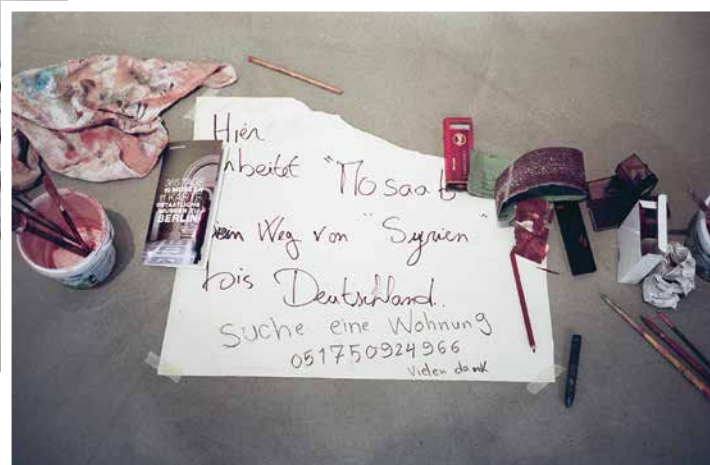 Hier
rbeitet "Mosaab
ein Weg von "Syrien"
bis Deutschland.
Suche eine Wohnung
051750924966
Vielen dank
19 MUSEEN
1 KARTE
STAATLICHE
MUSEEN ZU
BERLIN